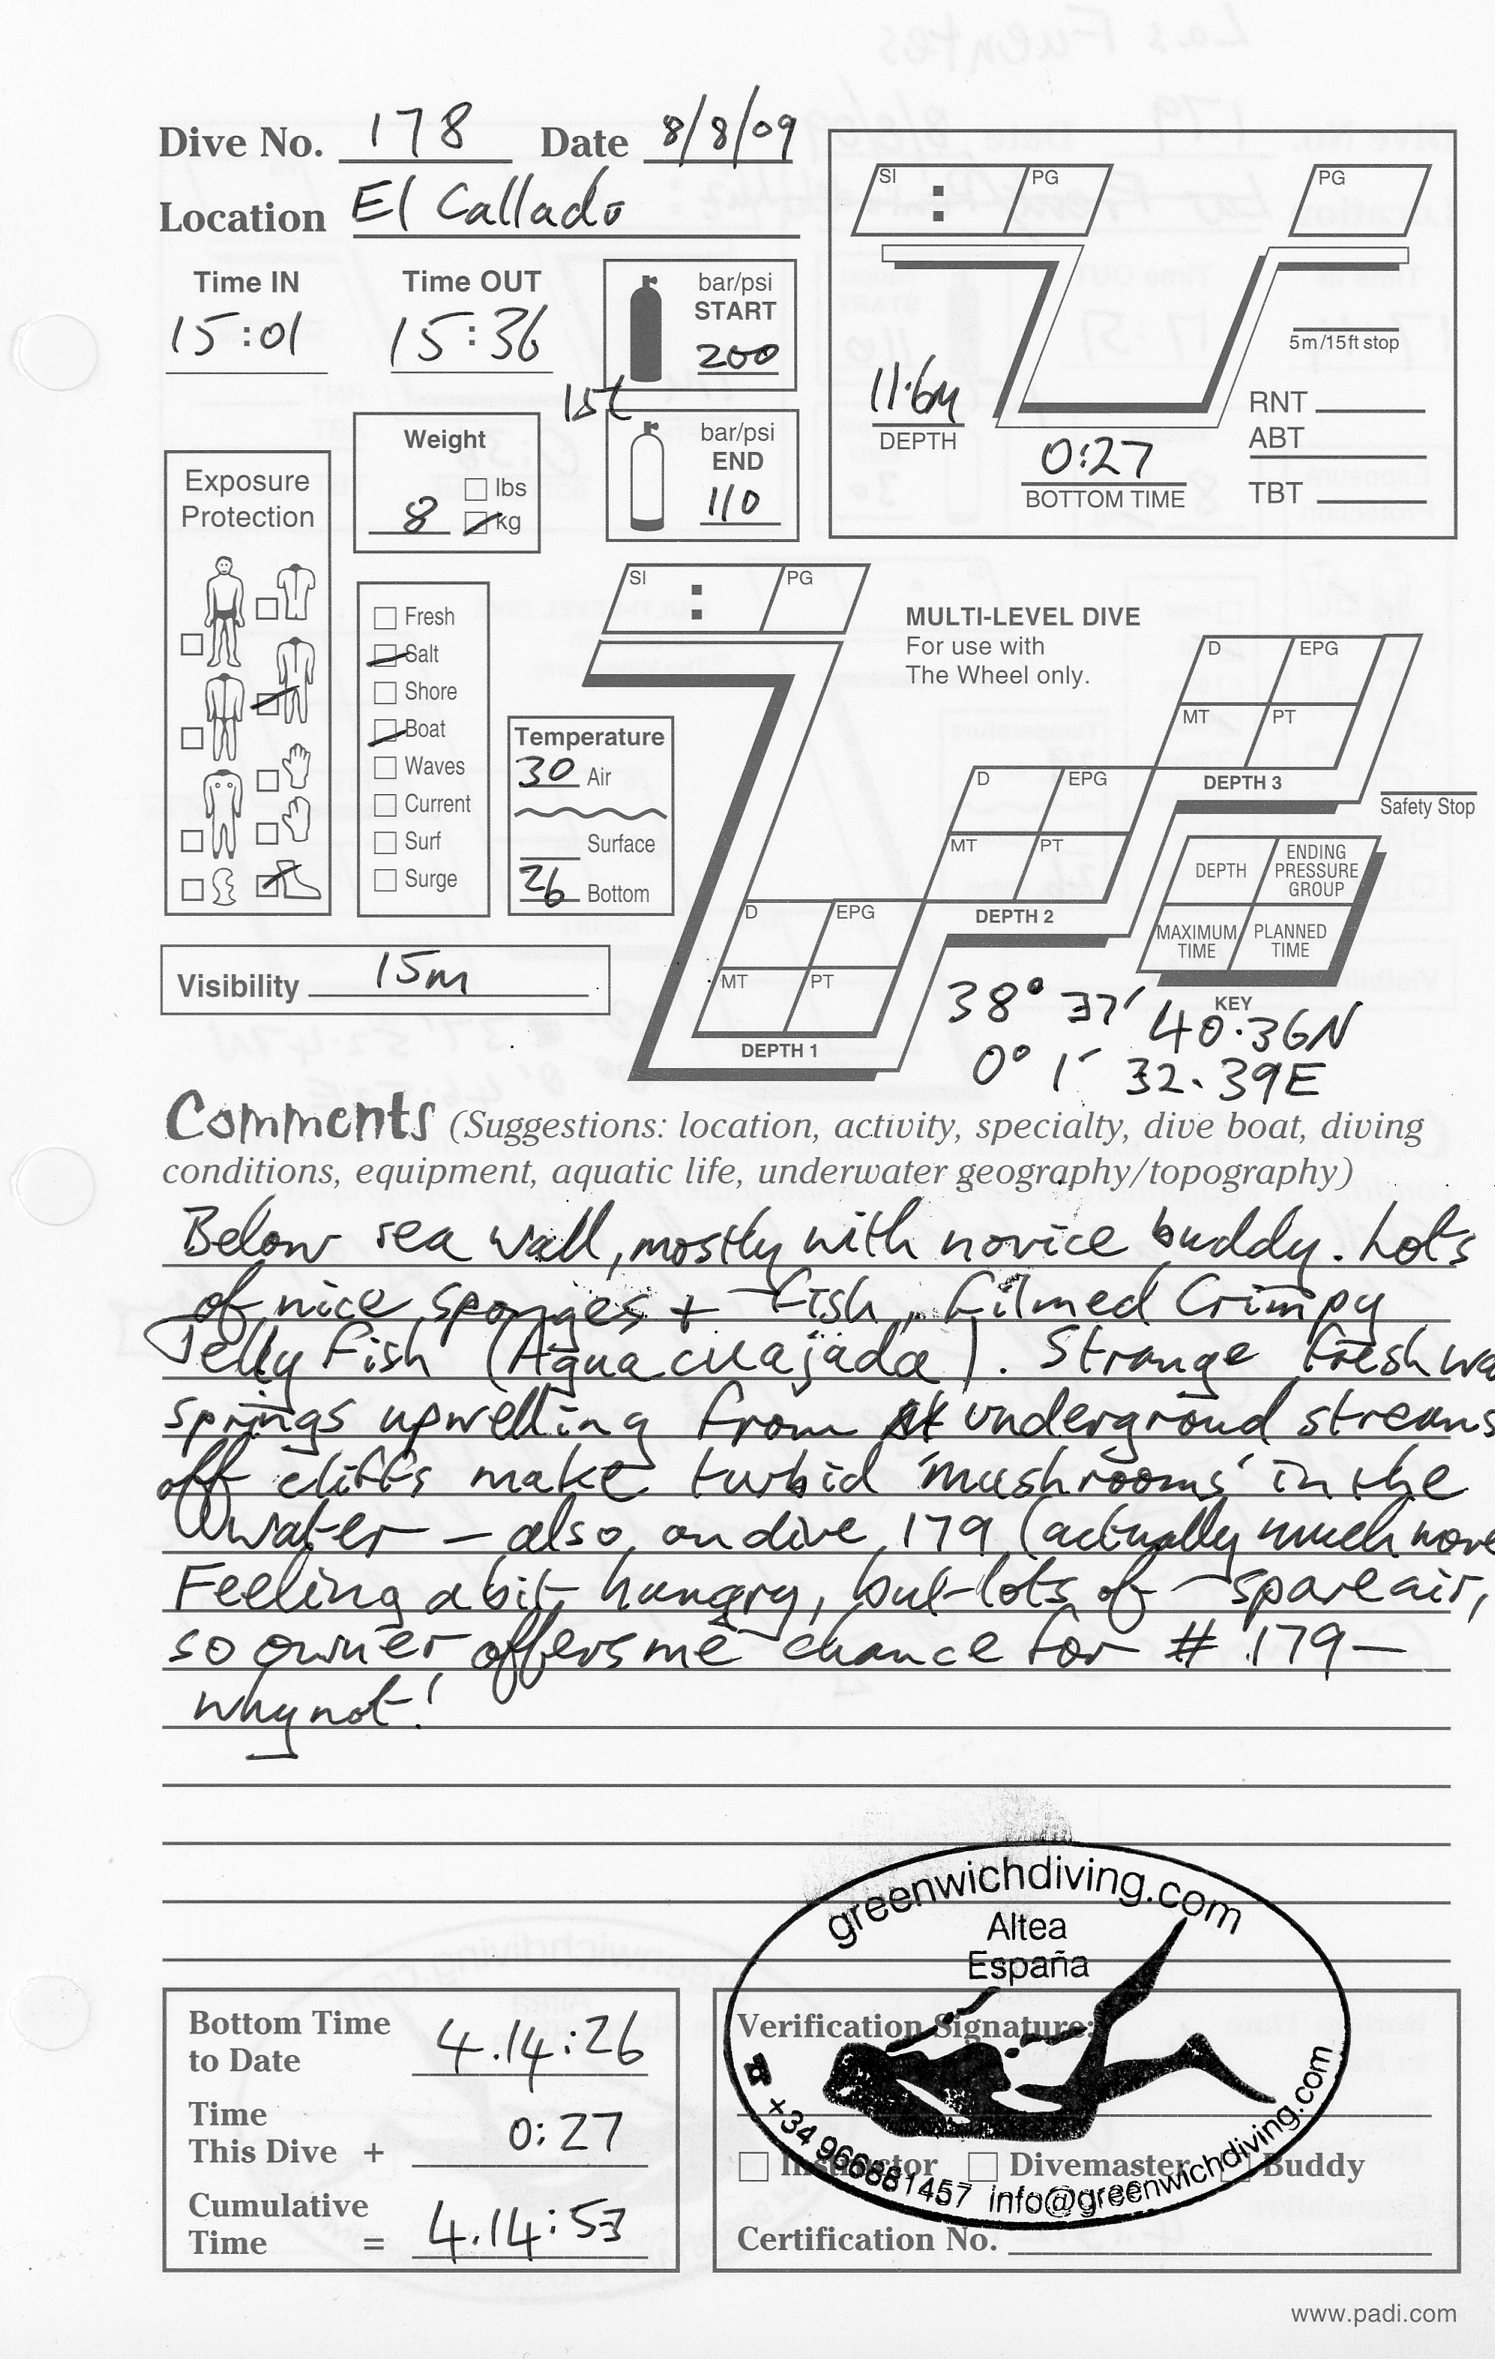 Dive No. 178 Date 8/8/09
Location El Callado
Time IN Time OUT
15:01 15:36
bar/psi
START
200
15l
bar/psi
END
110
SI : PG PG
5m/15ft stop
11.6m
DEPTH
0:27
BOTTOM TIME
RNT
ABT
TBT
Weight
lbs
8 kg
Exposure
Protection
Fresh
Salt
Shore
Boat
Waves
Current
Surf
Surge
Temperature
30 Air
Surface
26 Bottom
Visibility 15m
SI : PG
MULTI-LEVEL DIVE
For use with
The Wheel only.
D EPG
MT PT
DEPTH 3
Safety Stop
D EPG
MT PT
DEPTH 2
D EPG
MT PT
DEPTH 1
DEPTH
ENDING
PRESSURE
GROUP
MAXIMUM
TIME
PLANNED
TIME
KEY
38° 37′ 40.36N
0° 1′ 32.39E
Comments (Suggestions: location, activity, specialty, dive boat, diving
conditions, equipment, aquatic life, underwater geography/topography)
Below sea wall, mostly with novice buddy. Lots
of nice sponges + fish, filmed Crimpy
Jelly Fish (Agua cuajada). Strange fresh wa
springs upwelling from underground streams
off cliffs make turbid 'mushrooms' in the
water – also on dive 179 (actually much more
Feeling a bit hungry, but lots of spare air,
so owner offers me chance for # 179 –
why not!
greenwichdiving.com
Altea
España
+34 966881457 info@greenwichdiving.com
Bottom Time
to Date 4.14:26
Time
This Dive + 0:27
Cumulative
Time = 4.14:53
Verification Signature:
Instructor Divemaster Buddy
Certification No.
www.padi.com